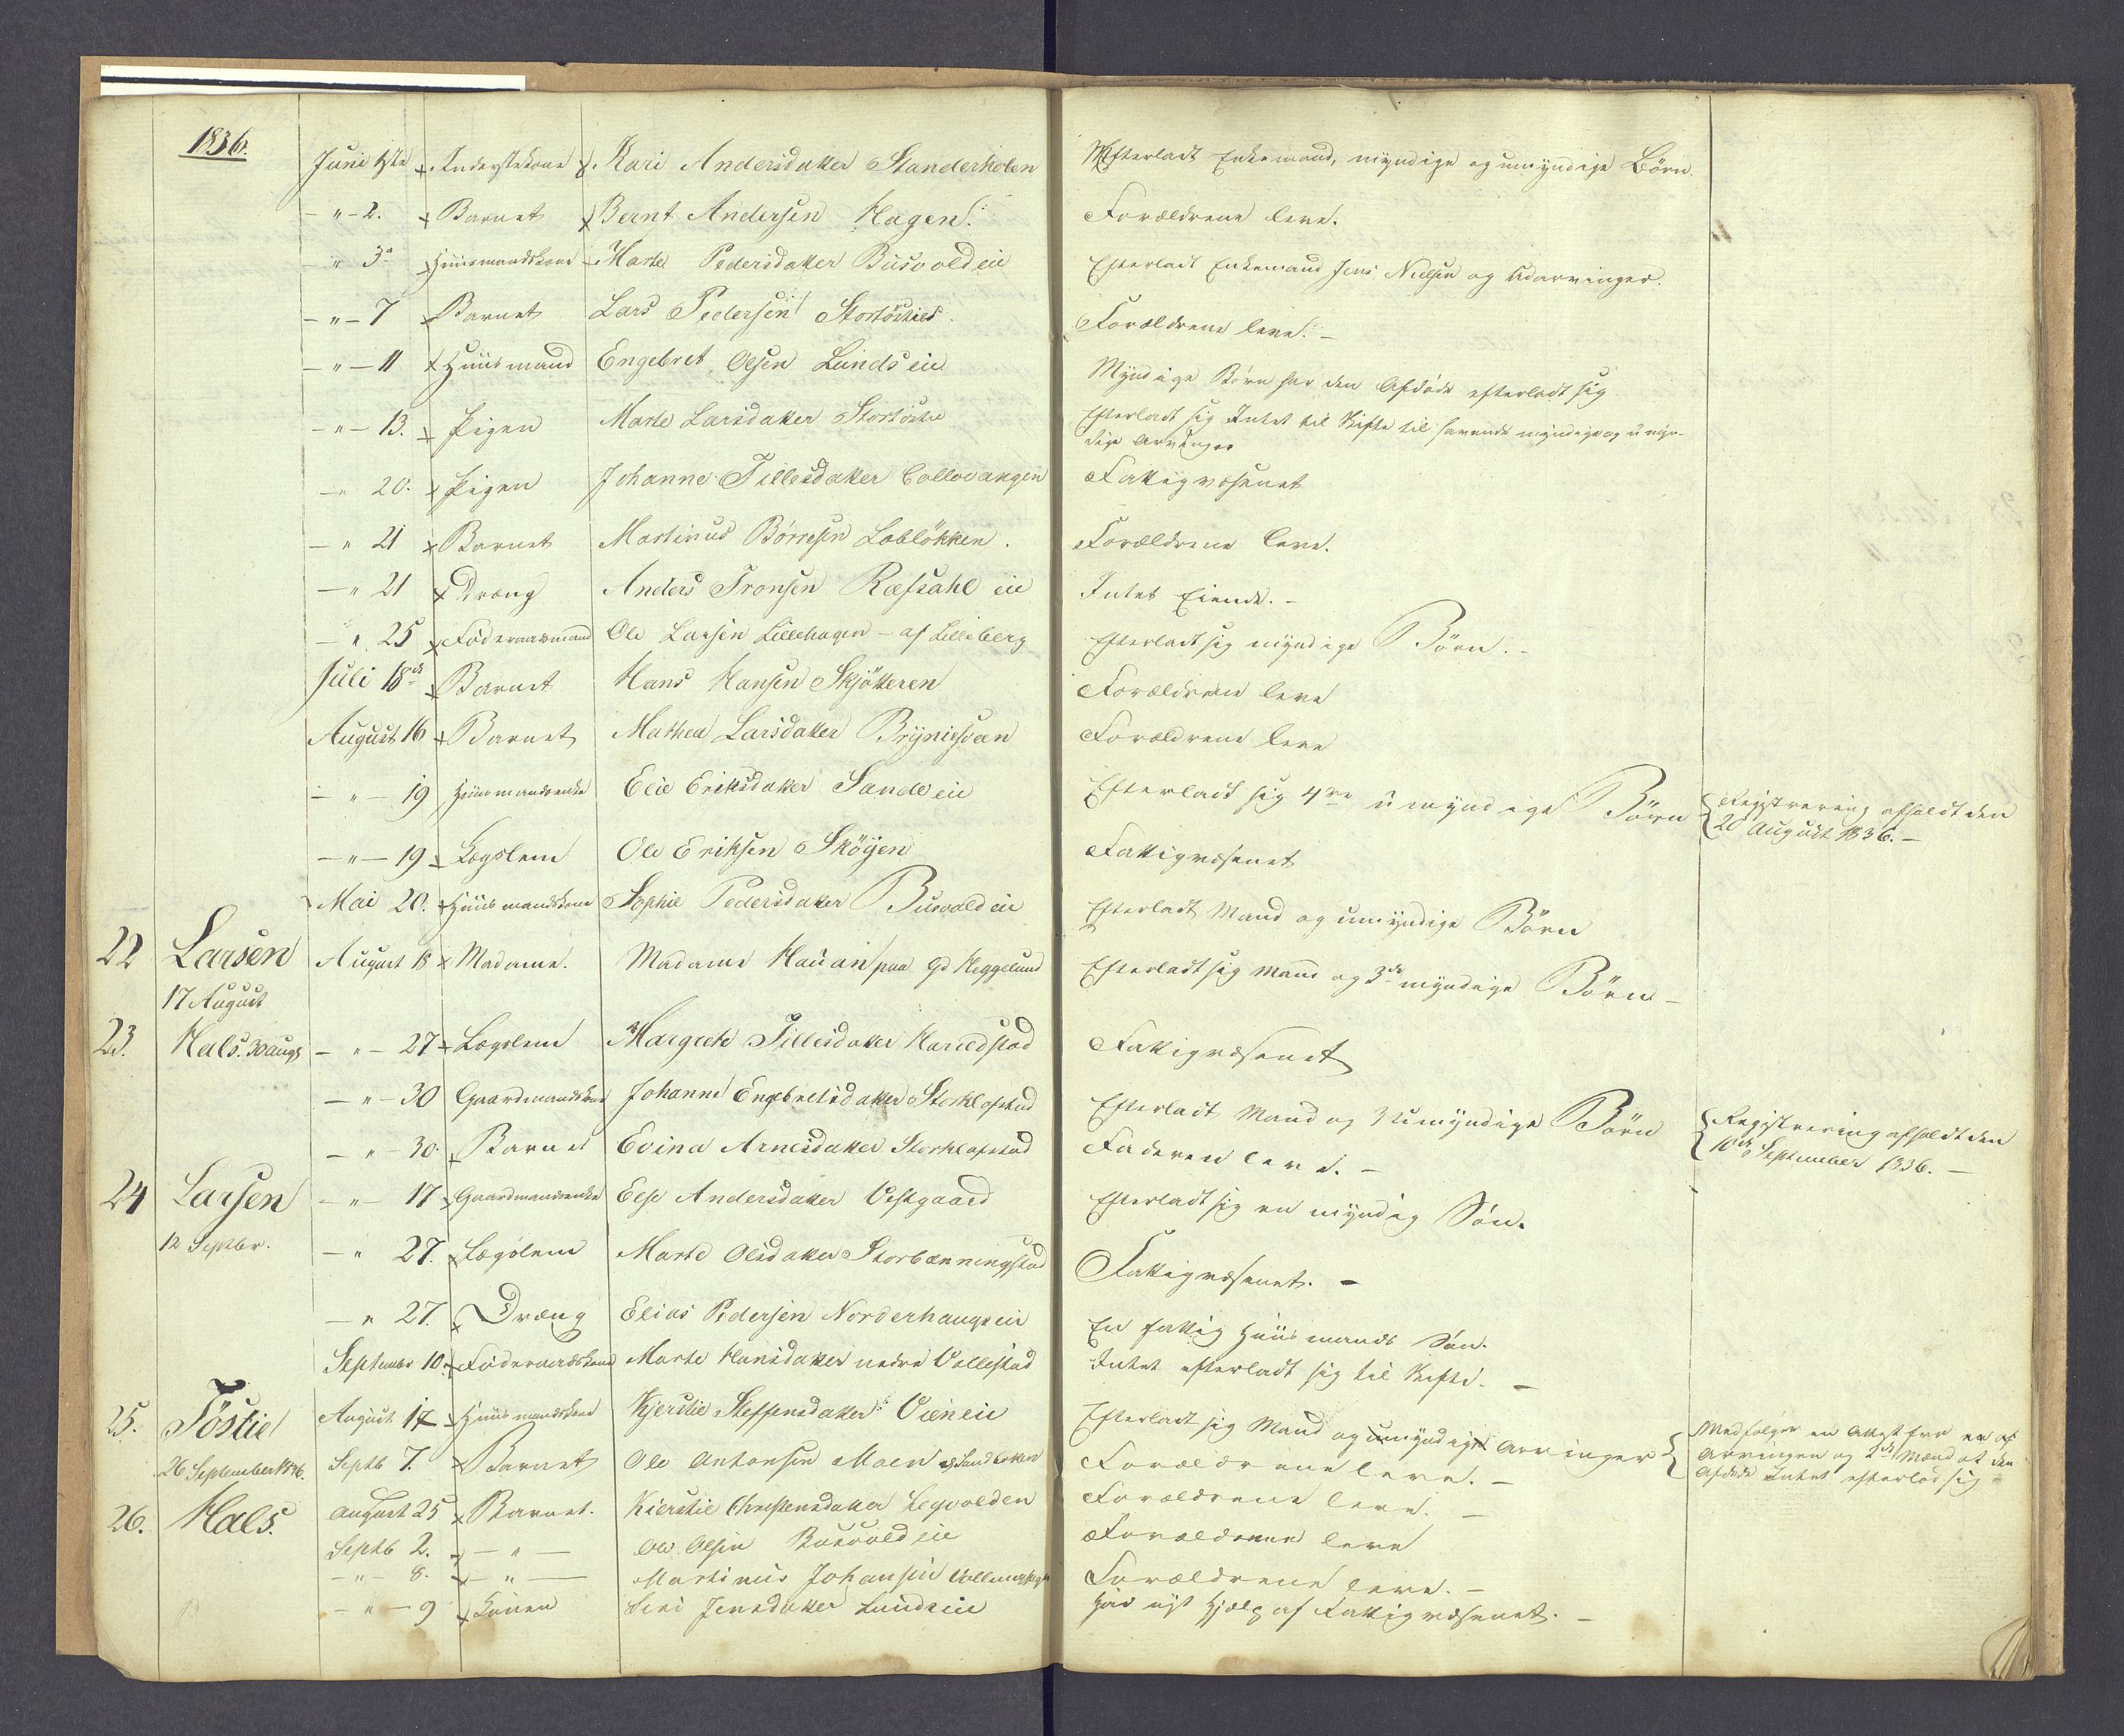 1836.
Juni 1ste Inderstekone Kari Andersdatter Standerholen Efterladt Enkemand, myndige og umyndige Börn.
— " — 2. Barnet Bernt Andersen Hagen. Forældrene leve.
" 3de Huusmandskone Marte Pedersdatter Busvold eie Efterladt Enkemand Jens Nielsen og Udarvinger.
— " — 7 Barnet Lars Pedersen Stortöstied. Forældrene leve. —
— " — 11 Huusmand Engebret Olsen Lunds eie Myndige Börn har den Afdöde efterladt sig
— " — 13. Pigen Marte Larsdatter Stortöstie Efterladt sig Intet til Skifte til havende myndige og umyn-
dige Arvinger
— " 20. Pigen Johanne Tillesdatter Fattigvæsenet
— " 21 Barnet Martinus Börresen Loblökken. Forældrene leve.
— " 21 Dreng Anders Tronsen Ræfsahl eie Intet Eiende. —
— " 25 Föderaadsmand Ole Larsen Lillehagen — af Lilleberg Efterladt sig myndige Börn. —
Juli 18de Barnet Hans Hansen Skjötteren Forældrene leve
August 16 Barnet Mathea Larsdatter Forældrene leve
— " — 19 Huusmandsenke Elie Eriksdatter Sande eie Efterladt sig 4re umyndige Börn Registrering afholdt den
20 August 1836. —
— " — 19 Lægslem Ole Eriksen Sköyen Fattigvæsenet
Mai 20. Huusmandskone Sophie Pedersdatter Busvold eie Efterladt Mand og umyndige Börn
22 Larsen August 18 Madame. Madame Hauan paa Gd Heggelund Efterladt sig Mand og 3de myndige Börn —
17 August
23. Hals. 30 Augs — " — 27 Lægslem Margrete Tillesdatter Harildstad Fattigvæsenet
— " — 30 Gaardmandskone Johanne Engebretsdatter Storklopstad Efterladt Mand og 3 umyndige Börn Registrering afholdt den
10de September 1836. —
— " — 30. Barnet Evina Arnesdatter Storklopstad Faderen leve. —
24 Larsen — " — 17 Gaardmandsenke Else Andersdatter Vestgaard Efterladt sig en myndig Sön.
12 Septbr. — " 27. Lægslem Marte Olsdatter Storbænningstad Fattigvæsenet. —
— " 27. Dreng Elias Pedersen Norderhaugs eie En fattig Huusmands Sön.
September 10. Föderaadskone Marte Hansdatter nedre Vollestad Intet efterladt sig til Skifte. —
25. Töstie August 17 Huusmandskone Kjerstie Steffensdatter Vien eie Efterladt sig Mand og umyndige Arvinger Medfølger en Attest fra en af
Arvingen og 2de Mænd at den
Afdöde Intet efterlod sig
26 September 1836. Septb 7. Barnet Ole Antonsen Moen af Sandbakken Forældrene leve. —
26. Hals. August 25 Barnet. Kierstie Christensdatter Legvolden Forældrene leve. —
Septb 2. — " — Ole Olsen Busvold eie Forældrene leve
— " — 8. — " — Martinus Johansen Forældrene leve. —
— " — 9 Konen Siri Jensdatter Lunds eie Har nydt Hjælp af Fattigvæsenet. —